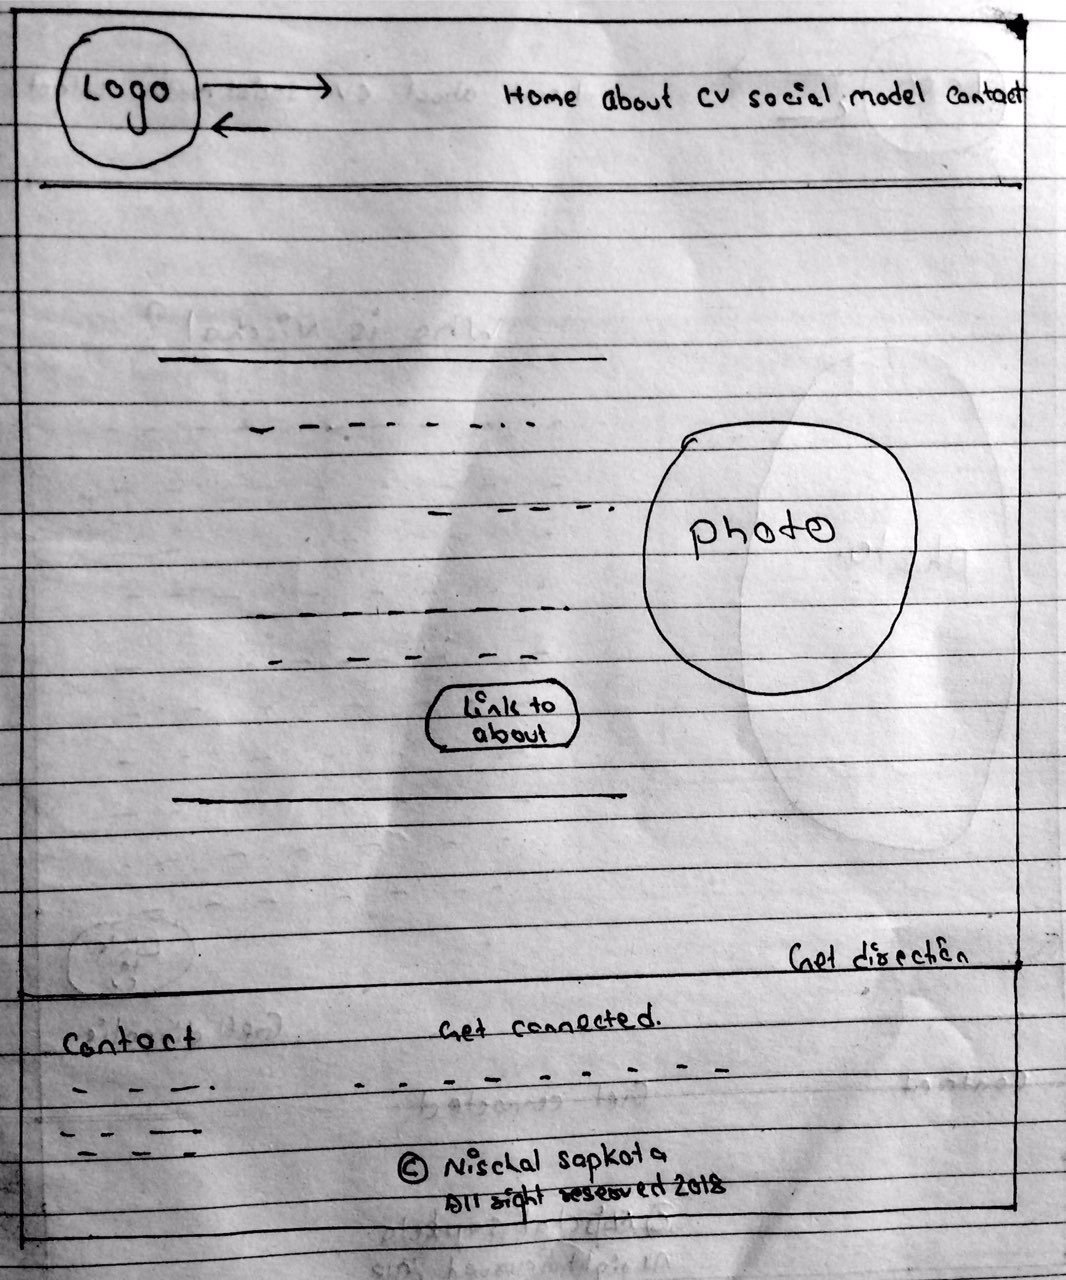 Logo
Home about CV social model contact
photo
Link to
about
Get direction
Contact
Get connected.
© Nischal Sapkota
All right reserved 2018